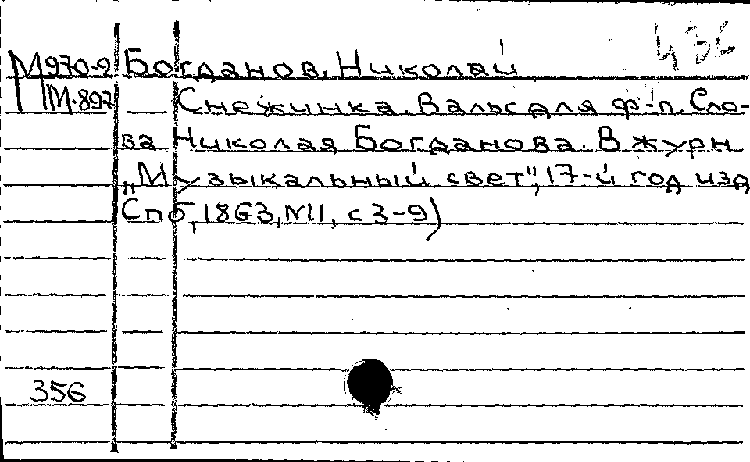 436
М970-9 Богданов, Николай
М-897 Снежинка. Вальс для ф-п. Сло-
ва Николая Богданова. В журн
„Музыкальный свет", 17-й год изд
Спб, 1863, №11, с 3-9)
356